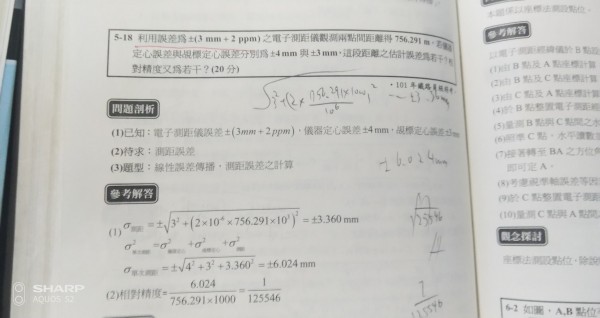 5-18 利用誤差為±(3 mm + 2 ppm) 之電子測距儀觀測兩點間距離得 756.291 m，若儀器
定心誤差與覘標定心誤差分別為±4 mm 與±3 mm，這段距離之估計誤差為若干？
對精度又為若干？(20 分)
• 101 年鐵路
問題剖析
(1)已知：電子測距儀誤差±(3mm+2ppm)，儀器定心誤差±4mm，覘標定心誤差±3mm
(2)待求：測距誤差
(3)題型：線性誤差傳播，測距誤差之計算
±6.024mm
參考解答
(1) σ測距 = ±√3² + (2×10⁻⁶ × 756.291×10³)² = ±3.360 mm
= ±√4² + 3² + 3.360² = ±6.024 mm
(2)相對精度± 6.024 / 756.291×1000 = 1 / 125546
1 / 125546
參考解答
以電子測距經緯儀於 B 點設
(1)由 B 點及 A 點座標計算
(2)由 B 點及 C 點座標計算
(3)由 C 點及 A 點座標計算
(4)於 B 點整置電子測距經
(5)量測 B 點與 C 點間之水
(6)照準 C 點，水平讀數
(7)接著轉至 BA 之方位角
即可定 A。
(8)考慮視準軸誤差等因
(9)於 C 點整置電子測距
(10)量測 C 點與 A 點間
觀念探討
座標法測設點位，除說
6-2 如圖，A,B 點位
SHARP
AQUOS S2